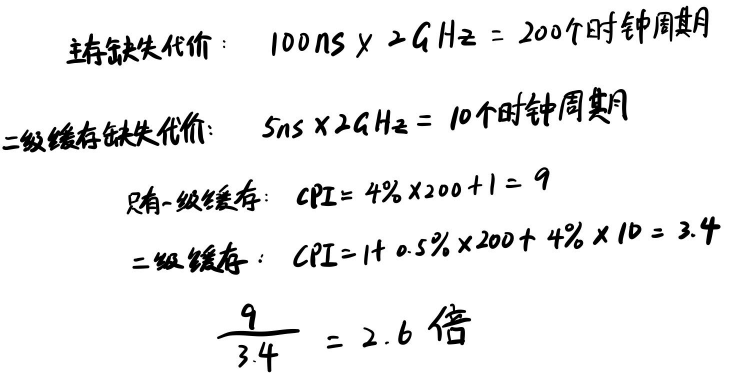 主存缺失代价: 100ns × 2GHz = 200个时钟周期
二级缓存缺失代价: 5ns×2GHz = 10个时钟周期
只有一级缓存: CPI= 4%×200+1 = 9
二级缓存: CPI=1+ 0.5%×200+ 4%×10 = 3.4
9/3.4 = 2.6 倍